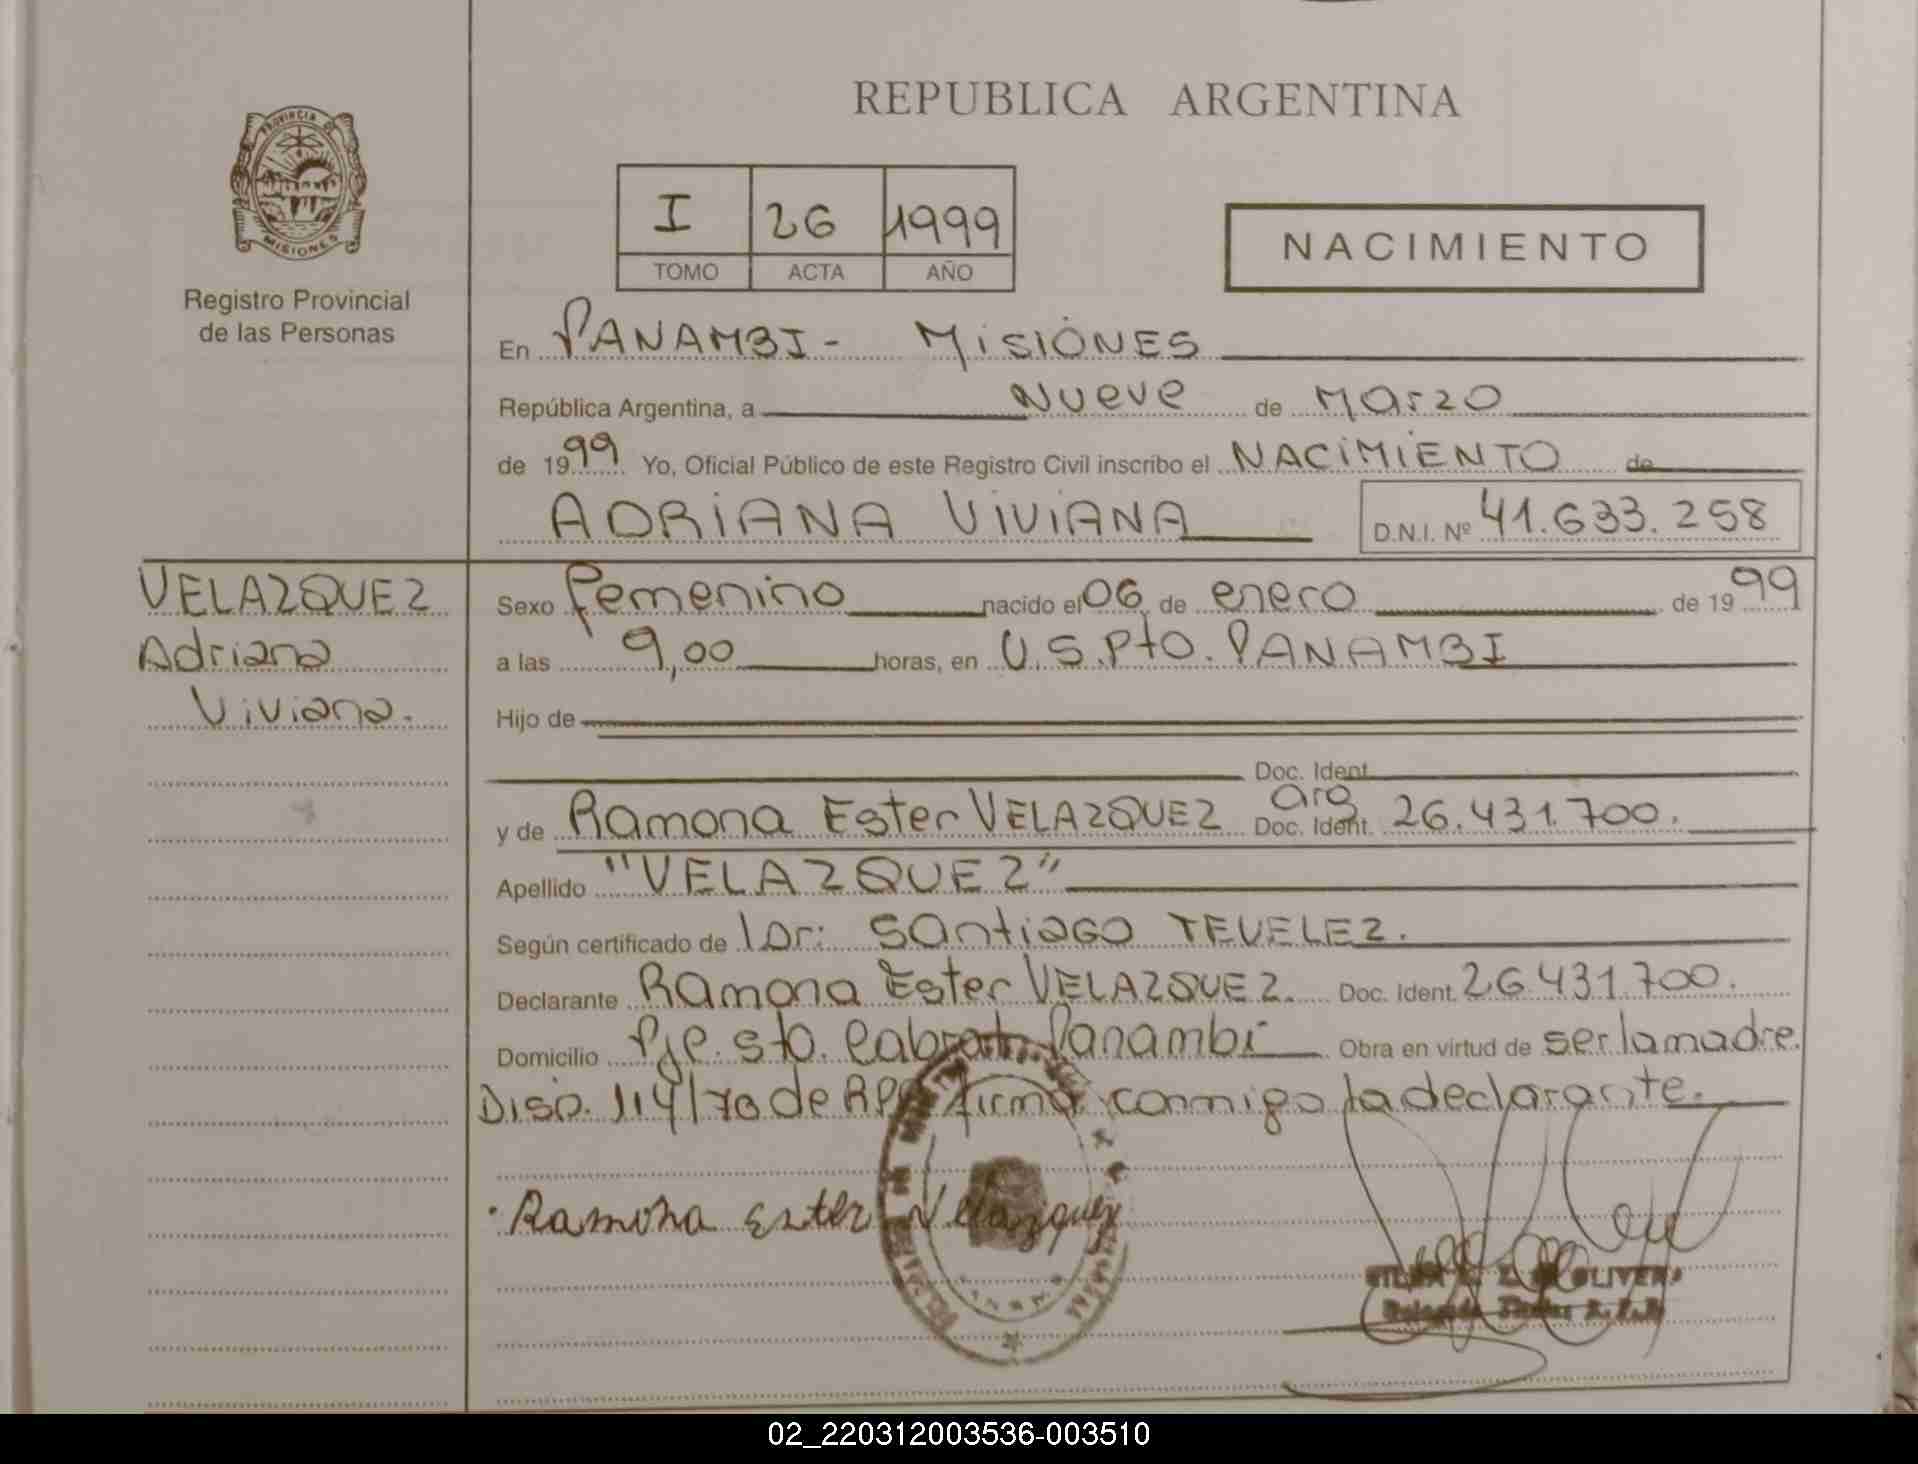 REPUBLICA ARGENTINA
PROVINCIA DE
MISIONES
Registro Provincial
de las Personas
I 26 1999
TOMO ACTA AÑO
NACIMIENTO
En PANAMBI - MISIONES
República Argentina, a Nueve de Marzo
de 1999 Yo, Oficial Público de este Registro Civil inscribo el NACIMIENTO de
ADRIANA VIVIANA D.N.I. Nº 41.633.258
VELAZQUEZ
Adriana
Viviana.
Sexo Femenino nacido el 06 de enero de 1999
a las 9,00 horas, en U.S. Pto. PANAMBI
Hijo de
Doc. Ident.
y de Ramona Ester VELAZQUEZ Doc. Ident. arg 26.431.700.
Apellido "VELAZQUEZ"
Según certificado de Dr: Santiago TEVELEZ.
Declarante Ramona Ester VELAZQUEZ. Doc. Ident. 26.431.700.
Domicilio Pje. Sto. Cabral Panambi Obra en virtud de ser la madre.
Disp. 114/70 de firma conmigo la declarante.
Ramona Ester Velazquez
OLIVERA
02_220312003536-003510